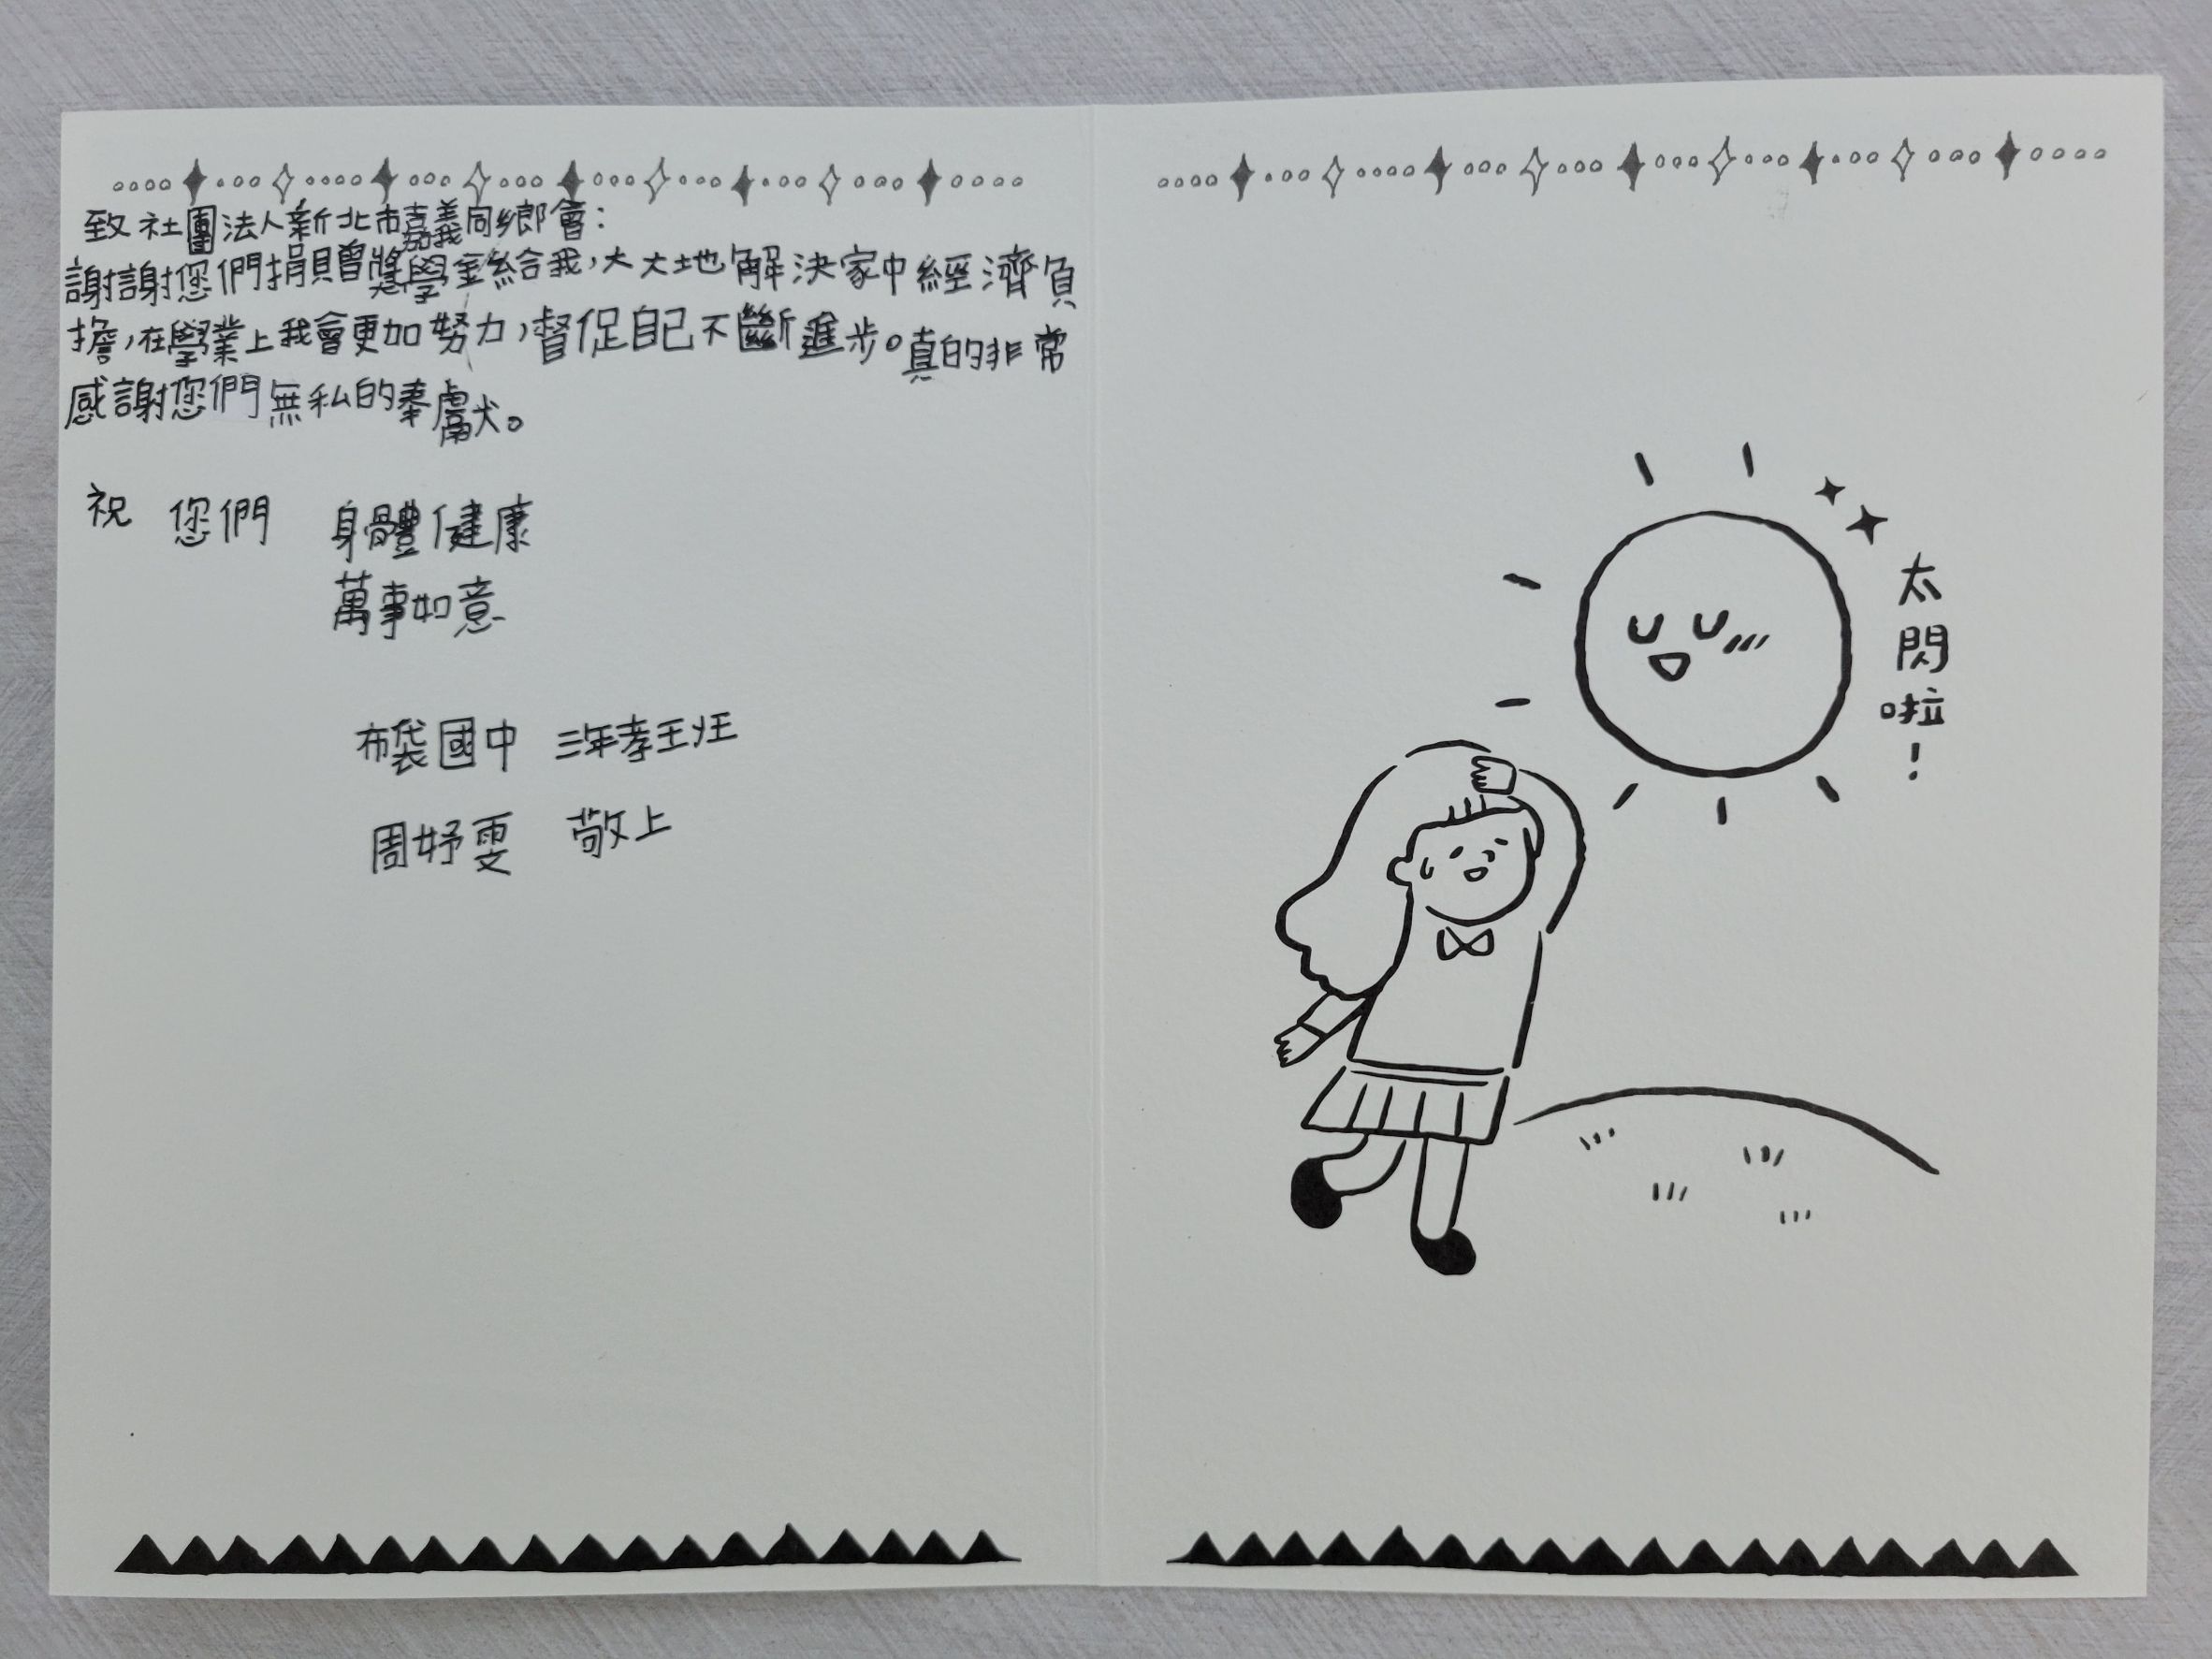 致社團法人新北市嘉義同鄉會：
謝謝您們捐贈獎學金給我，大大地解決家中經濟負
擔，在學業上我會更加努力，督促自己不斷進步。真的非常
感謝您們無私的奉獻。
祝 您們 身體健康
萬事如意
布袋國中 三年孝班
周妤雯 敬上
太閃啦！